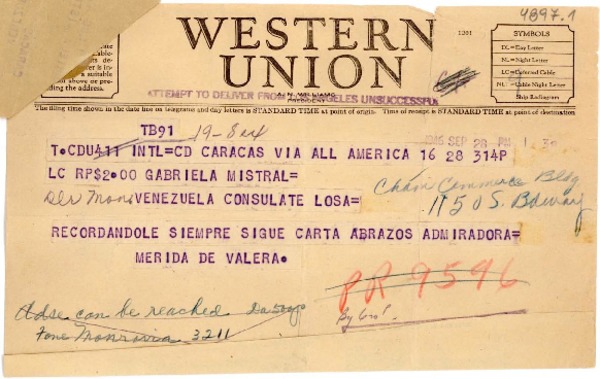 4897.1
WESTERN
UNION
1201
SYMBOLS
DL=Day Letter
NL=Night Letter
LC=Deferred Cable
NLT=Cable Night Letter
Ship Radiogram
ATTEMPT TO DELIVER FROM LOS ANGELES UNSUCCESSFUL
N. WILLIAMS
PRESIDENT
The filing time shown in the date line on telegrams and day letters is STANDARD TIME at point of origin. Time of receipt is STANDARD TIME at point of destination
TB91
1946 SEP 28 PM 1
T.CDU411 INTL=CD CARACAS VIA ALL AMERICA 16 28 314P
LC RP$2.00 GABRIELA MISTRAL=
Cham Commerce Bldg
VENEZUELA CONSULATE LOSA=
1150 S. Bdway
RECORDANDOLE SIEMPRE SIGUE CARTA ABRAZOS ADMIRADORA=
MERIDA DE VALERA.
PR 9596
Adse can be reached
Fone Monrovia 3211